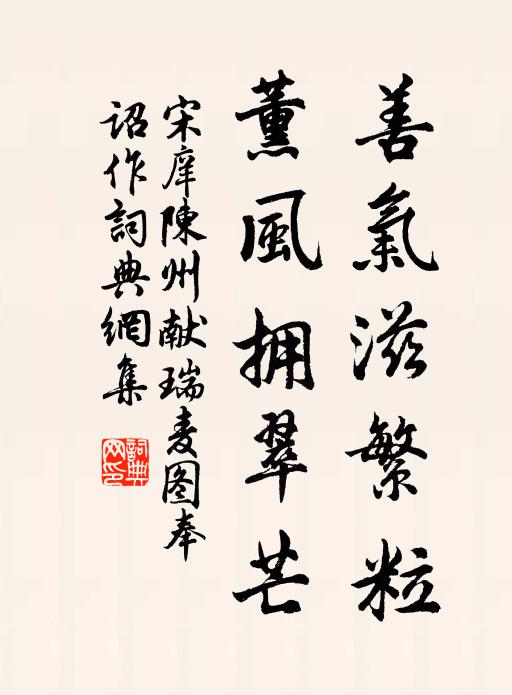 善氣滋繁粒
薰風拥翠芒
宋庠陳州献瑞麦图奉
詔作詞典網集
詞典網印